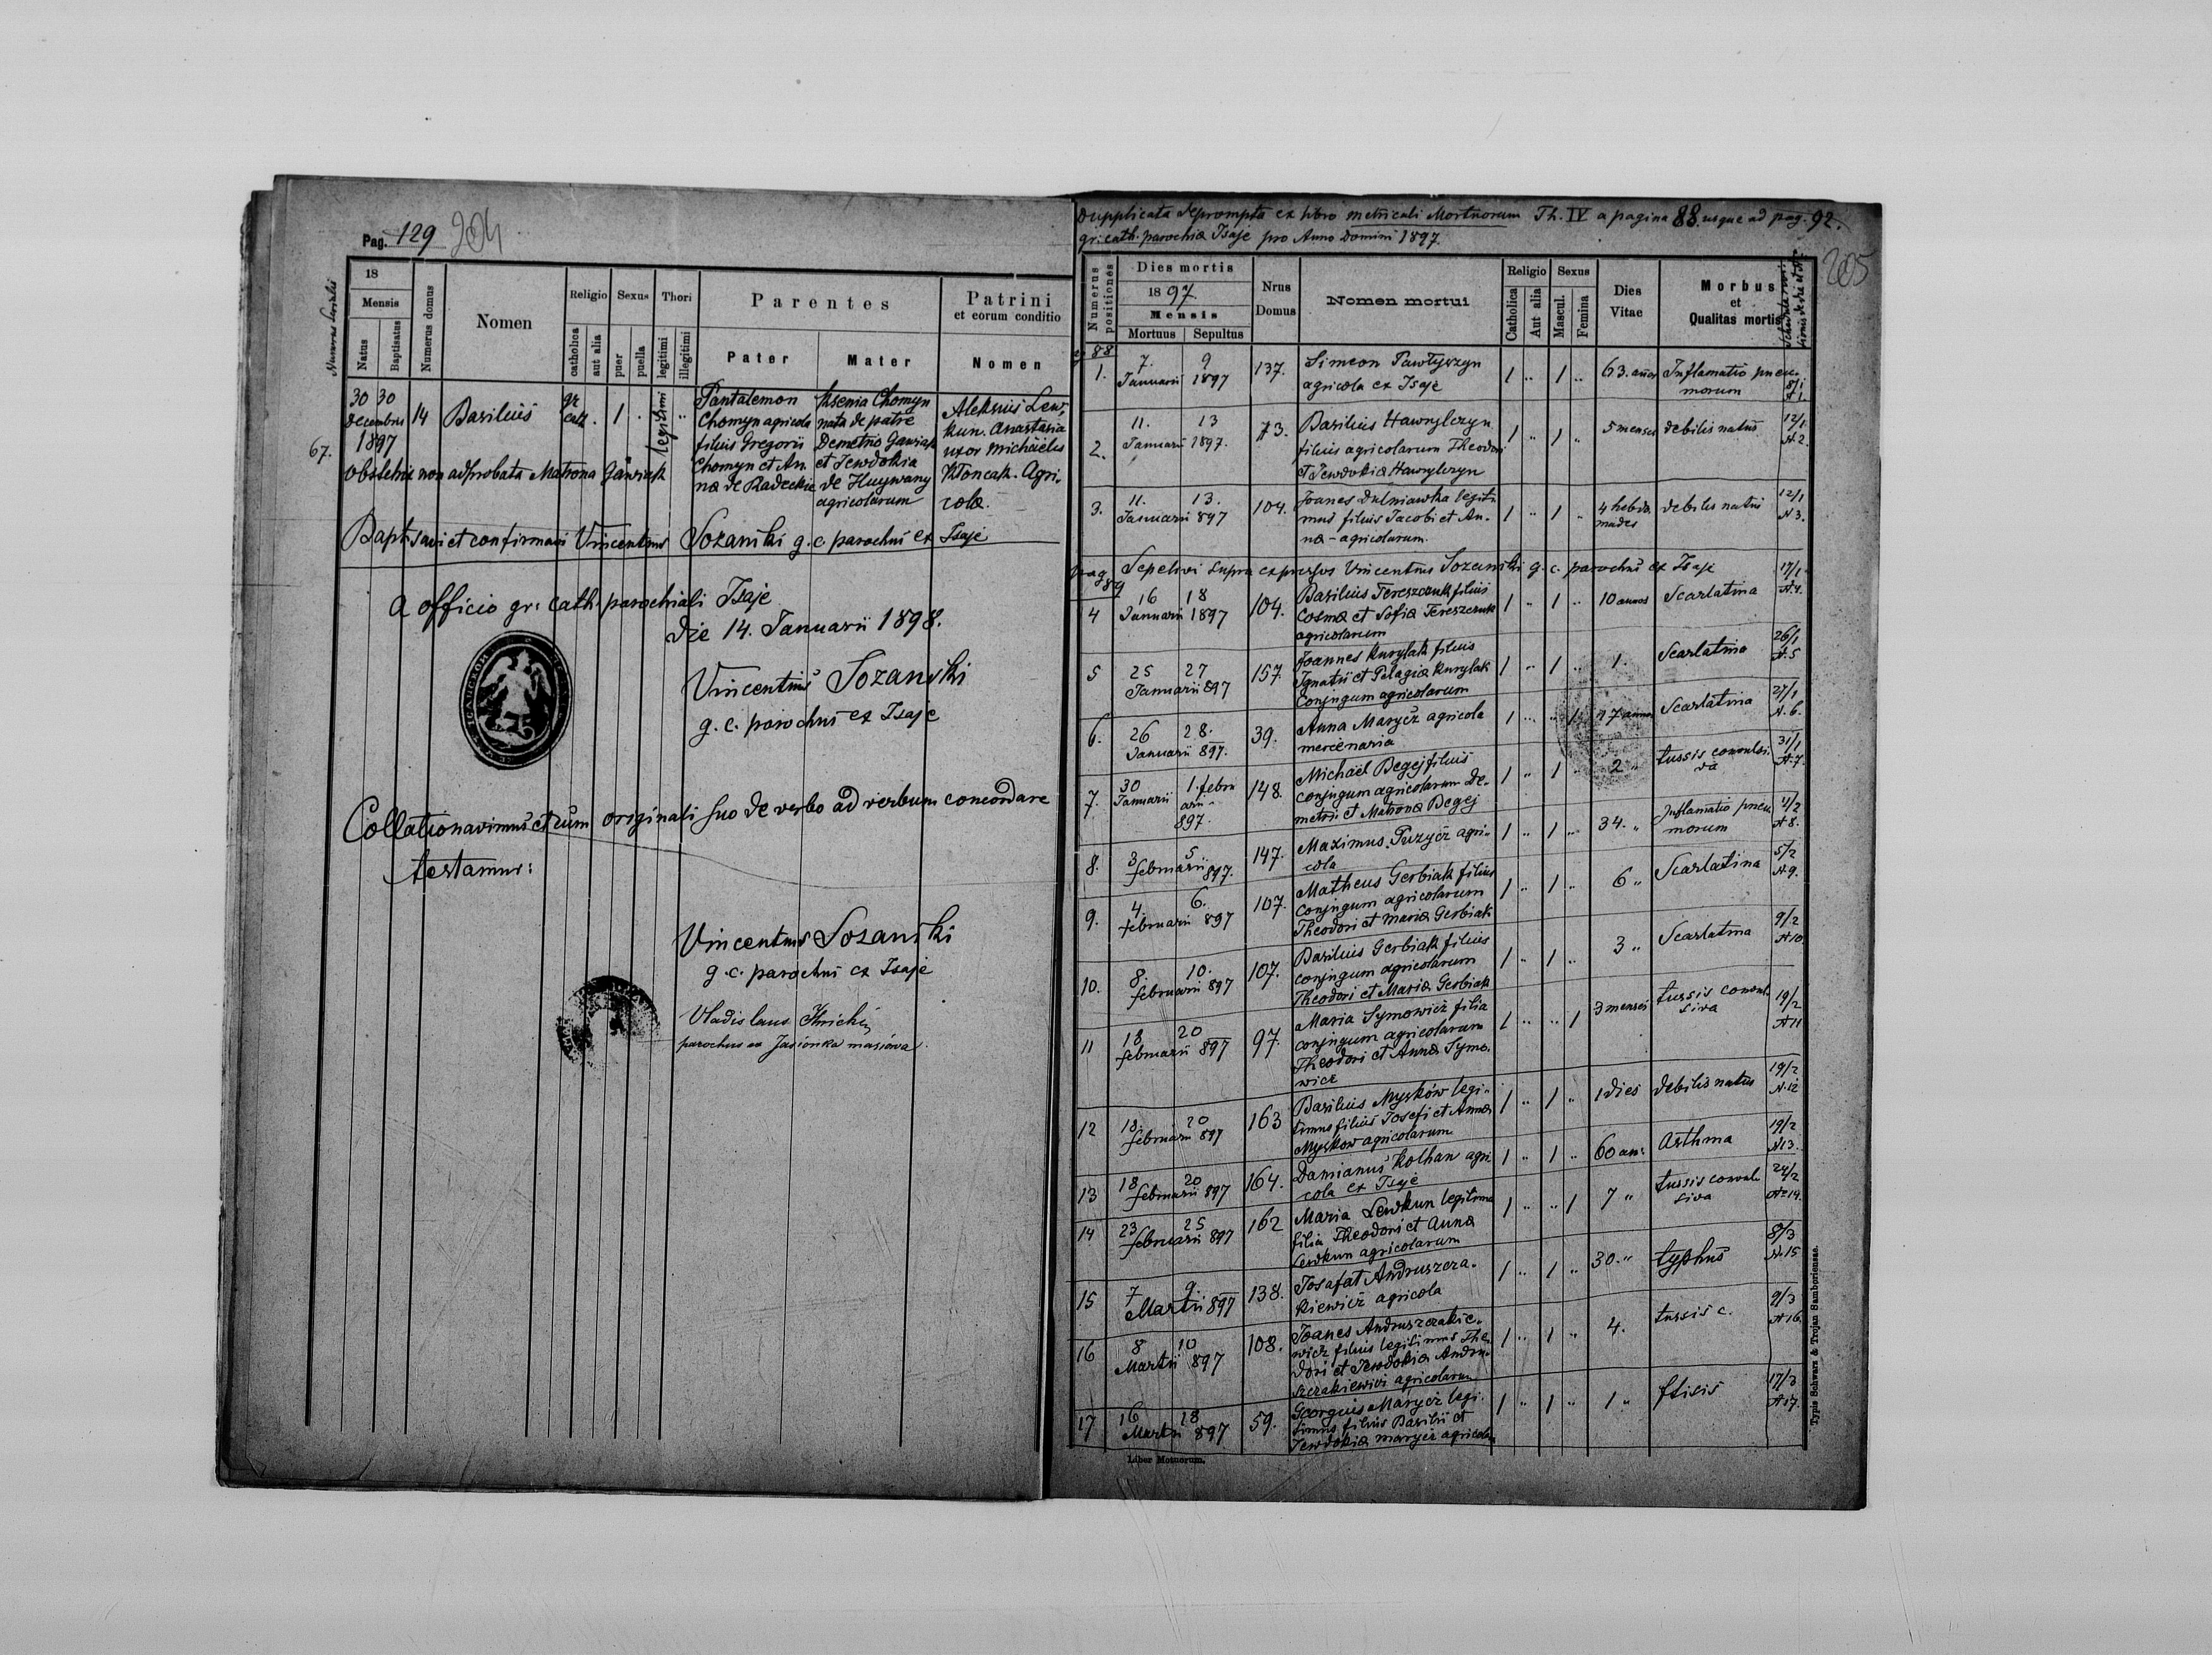 Pag. 129 204
Numerus serialis
18
Mensis
Natus
Baptisatus
Numerus domus
Nomen
Religio
catholica
aut alia
Sexus
puer
puella
Thori
legitimi
illegitimi
Parentes
Pater
Mater
Patrini
et eorum conditio
Nomen
67.
30 30
Decembris
1897
14
Basilius
gr.
cath.
1
legitimi
Pantalemon
Chomyn agricola
filius Gregorii
Chomyn et An.
na de Radeckie
Ksenia Chomyn
nata de patre
Demetrio Gawriak
et Jewdokia
de Huywany
agricolarum
Aleksius Lew,
kun. Anastasia
uxor Michaëlis
Kłoncak. Agri.
colæ.
Obstetrix non adprobata Matrona Gawriak
Baptisavi et confirmavi Vincentius Sozański g. c. parochus ex Isaje
a officio gr: cath: parochiali Isaje
die 14. Januarii 1898.
Vincentius Sozański
g. c. parochus ex Isaje
Collationavimus et cum originali suo de verbo ad verbum concordare
testamur:
Vincentius Sozański
g. c. parochus ex Isaje
Vladislaus
parochus ex Jasionka masiowa.
Dupplicata deprompta ex libro metricali Mortuorum Th. IV a pagina 88. usque ad pag. 92.
gr: cath. parochiæ Isaje pro Anno Domini 1897.
205
Numerus positiones
Dies mortis
1897.
Mensis
Mortuus
Sepultus
Nrus
Domus
Nomen mortui
Religio
Catholica
Aut alia
Sexus
Mascul.
Femina
Dies
Vitae
Morbus
et
Qualitas mortis
88
1. 7. 9 Januarii 1897 137. Simeon Pawłyszyn
agricola ex Isaje
1 .. 1 .. 63. annos Inflamatio pneu.
morum 8/1 N 1.
2. 11. 13 Januarii 1897. 73. Basilius Hawrylczyn
filius agricolarum Theodori
et Jewdokiæ Hawrylczyn
1 .. 1 .. 5 menses debilis natus 12/1 N 2.
3. 11. 13. Januarii 897 104. Joanes Dulniawka legiti
mus filius Jacobi et An.
næ - agricolarum.
1 .. 1 .. 4 hebdo
mades debilis natus 12/1 N 3.
pag 89 Sepelivi supra expressos Vincentius Sozański g. c. parochus ex Isaje
4 16 18 Januarii 1897 104. Basilius Tereszczuk filius
Cosmæ et Sofiæ Tereszczuk
agricolarum
1 .. 1 .. 10 annos Scarlatina 17/1 N 4.
5 25 27 Januarii 897 157. Joannes Kurylak filius
Ignatii et Pelagiæ Kurylak
Conjugum agricolarum
1 .. 1 .. 1. Scarlatina 26/1 N. 5
6. 26 28. Januarii 897. 39. Anna Marycz agricola
mercenaria
1 .. .. 1 17 annos Scarlatina 27/1 N. 6.
7. 30 Januarii 1. febru
arii
897. 148. Michaël Begej filius
conjugum agricolarum De.
metrii et Matronæ Begej
1 .. 1 .. 2 " tussis convulsi.
va 31/1 N. 7.
8. 3 5 februarii 897. 147. Maximus Puzycz agri.
cola
1 .. 1 .. 34. " Inflamatio pneu
morum 4/2 N 8.
9. 4. 6. februarii 897 107. Matheus Gerbiak filius
conjugum agricolarum
Theodori et Mariæ Gerbiak
1 .. 1 .. 6 " Scarlatina 5/2 N 9.
10. 8. 10. februarii 897 107. Basilius Gerbiak filius
conjugum agricolarum
Theodori et Mariæ Gerbiak
1 .. 1 .. 3 " Scarlatina 9/2 N 10
11 18 20 februarii 897 97. Maria Symowicz filia
conjugum agricolarum
Theodori et Annæ Symo.
wicz
1 .. .. 1 3 menses tussis convul
siva 19/2 N 11
12 18. 20 februarii 897 163 Basilius Myśków legi.
timus filius Josefi et Annæ
Myśkow agricolarum
1 .. 1 .. 1 dies debilis natus 19/2 N. 12
13 18 20 februarii 897 164. Damianus Kolhan agri
cola ex Isaje
1 .. 1 .. 60 an: Asthma 19/2 N 13.
14 23 25 februarii 897 162 Maria Lewkun legitima
filia Theodori et Annæ
Lewkun agricolarum
1 .. .. 1 7 " tussis convul
siva 24/2 N 14.
15 7 9. Martii 897 138. Josafat Andruszcza.
kiewicz agricola
1 .. 1 .. 30. " typhus 8/3 N. 15
16 8 10 Martii 897 108. Joanes Andruszczakie.
wicz filius legitimus Theo
dori et Jewdokiæ Andru
szczakiewicz agricolarum
1 .. 1 .. 4. tussis c. 9/3 N 16.
17 16 18 Martii 897 59. Georgius Marycz legi.
timus filius Basilii et
Jewdokiæ Marycz agricolar
1 .. 1 .. 1 " ftisis 17/3 N 17.
Liber Motuorum.
Typis Schwarz & Trojan Samboriensae.